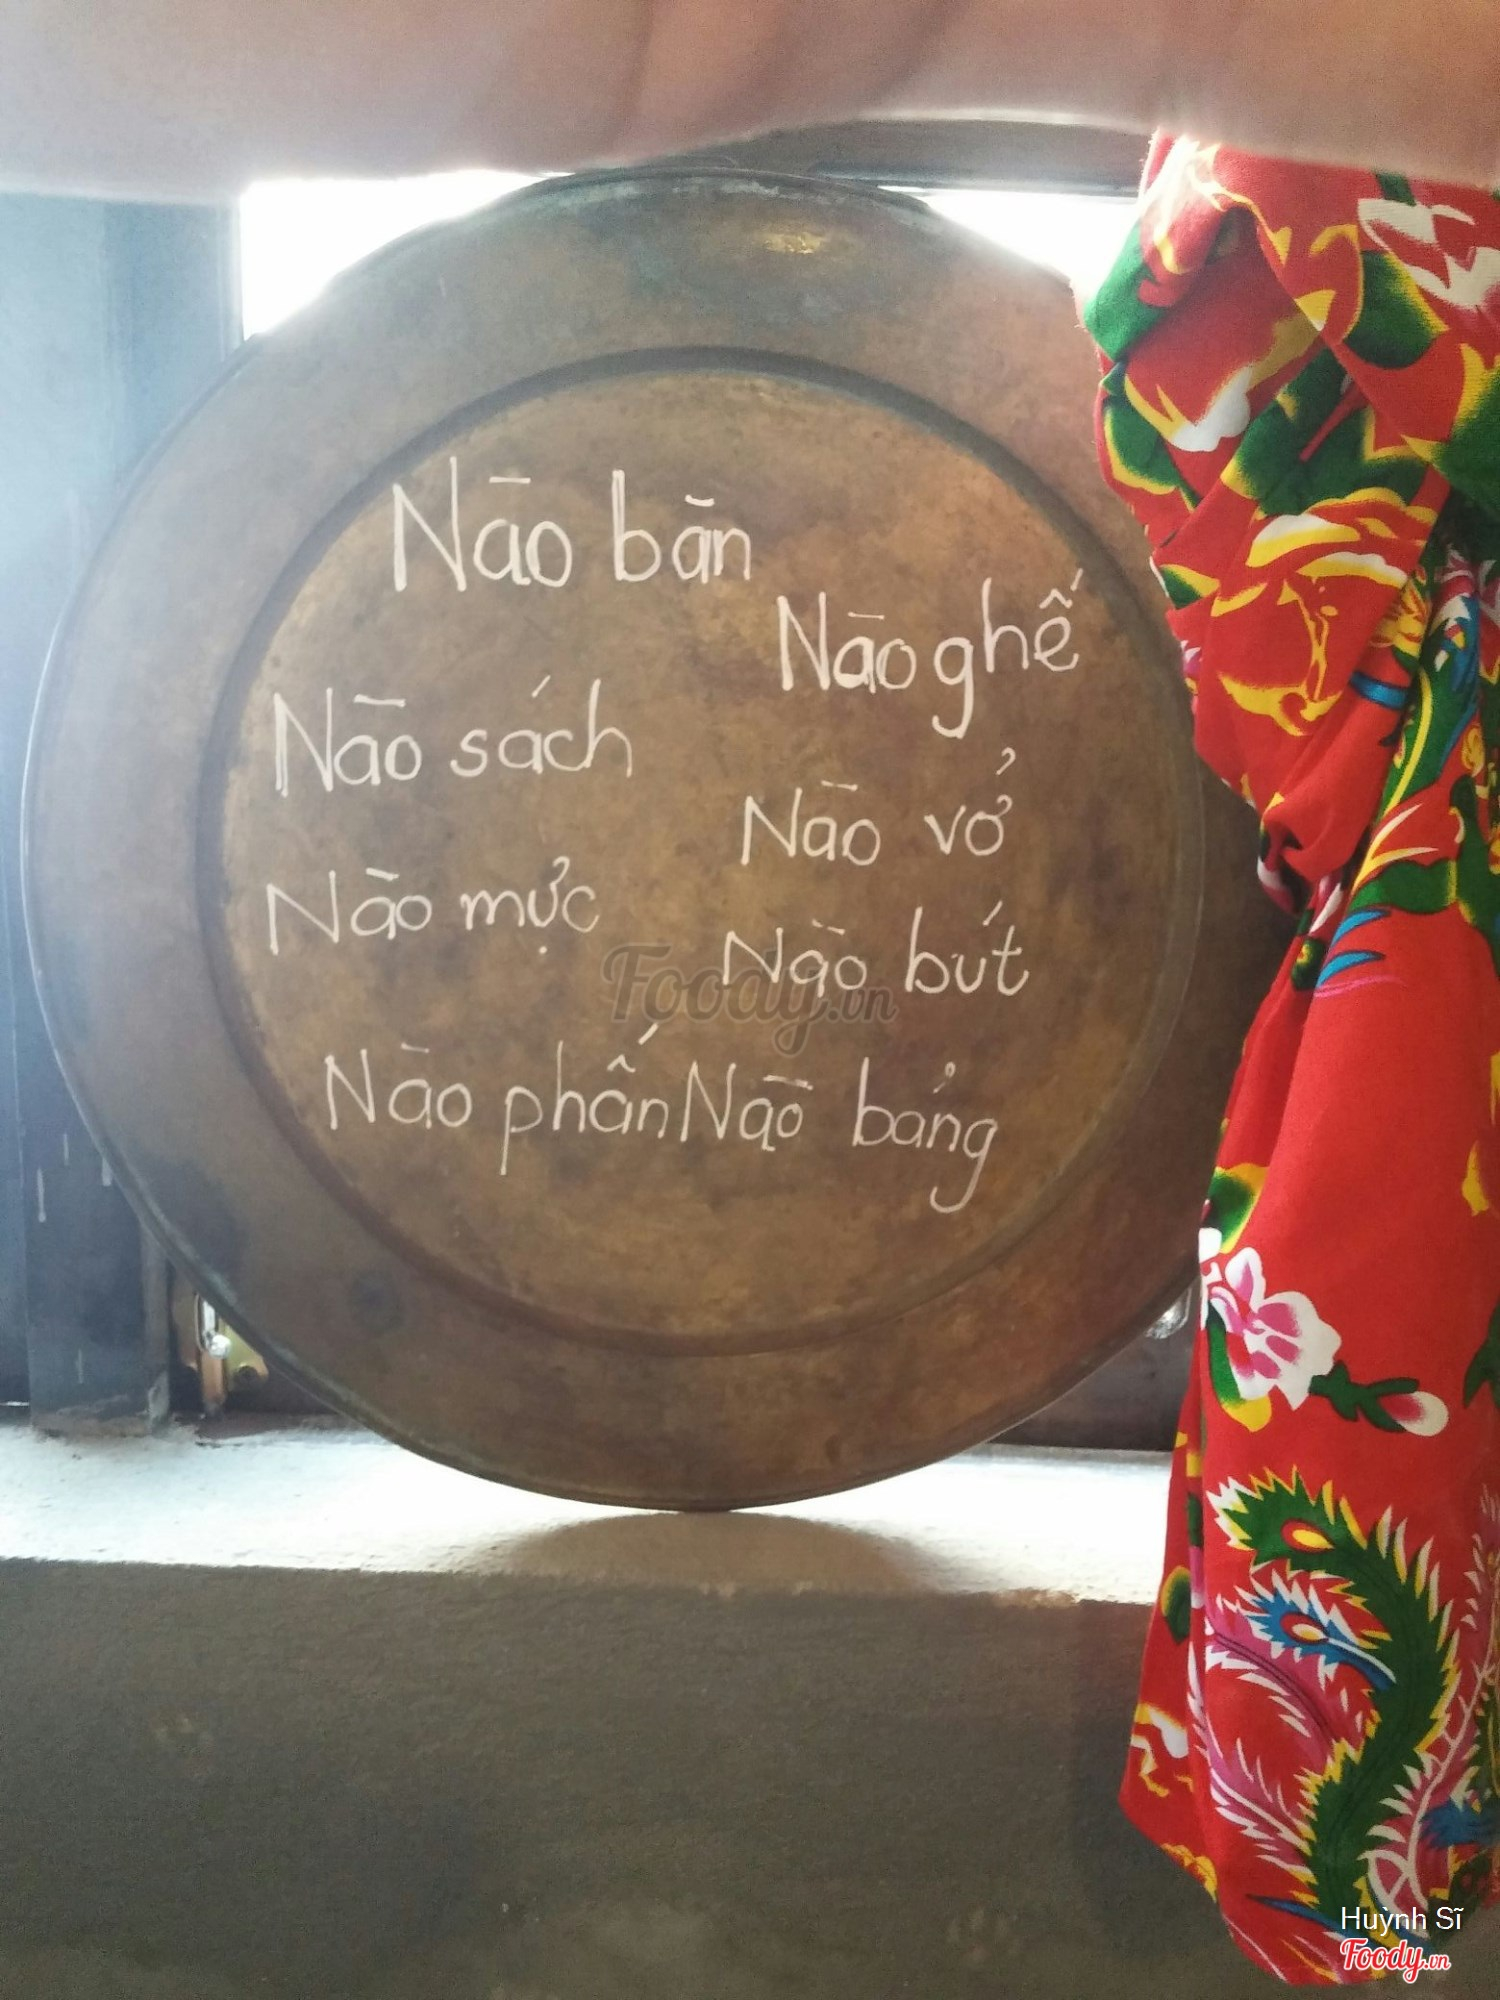 Nào bàn
Nào ghế
Nào sách
Nào vở
Nào mực
Nào bút
Nào phấn Nào bảng
Foody.vn
Huỳnh Sĩ
Foody.vn